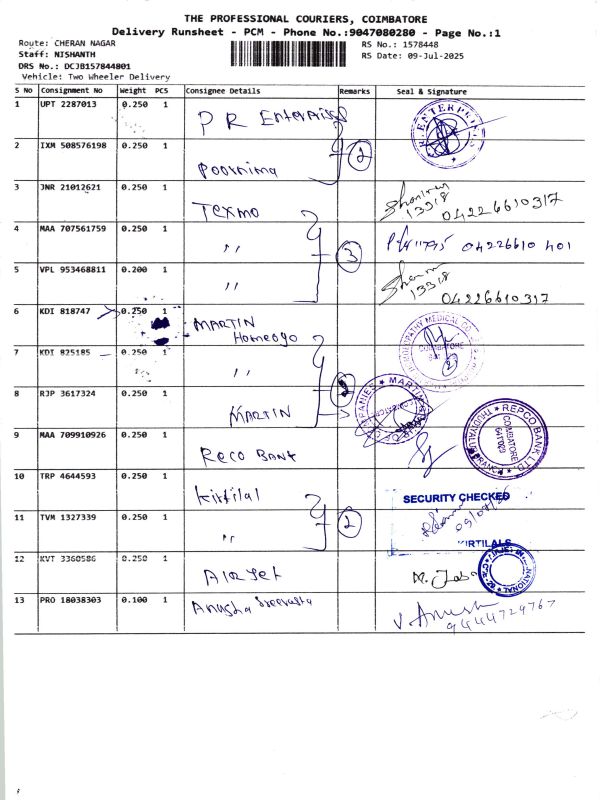 THE PROFESSIONAL COURIERS, COIMBATORE
Delivery Runsheet - PCM - Phone No.:9047080280 - Page No.:1
Route: CHERAN NAGAR
RS No.: 1578448
Staff: NISHANTH
RS Date: 09-Jul-2025
DRS No.: DCJB157844801
Vehicle: Two Wheeler Delivery
S No Consignment No Weight PCS Consignee Details Remarks Seal & Signature
1 UPT 2287013 0.250 1 P R Enterprises
R. ENTERPRISES
2 IXM 508576198 0.250 1 Poornima 2
3 JNR 21012621 0.250 1 Texmo 13318 04226610317
4 MAA 707561759 0.250 1 " 3 04226610 401
5 VPL 953468811 0.200 1 " 13318 04226610317
6 KDI 818747 0.250 1 MARTIN Homeopo
COIMBATORE
7 KDI 825185 0.250 1 " 2
8 RJP 3617324 0.250 1 MARTIN
9 MAA 709910926 0.250 1 RECO BANK
REPCO BANK LTD.
COIMBATORE
641023
BRANCH
10 TRP 4644593 0.250 1 Kirtilal
SECURITY CHECKED
11 TVM 1327339 0.250 1 " 2
KIRTILALS
12 KVT 3360586 0.250 1 AIRJET
13 PRO 18038303 0.100 1 Anusha Sreevasta V Anush
9444729767